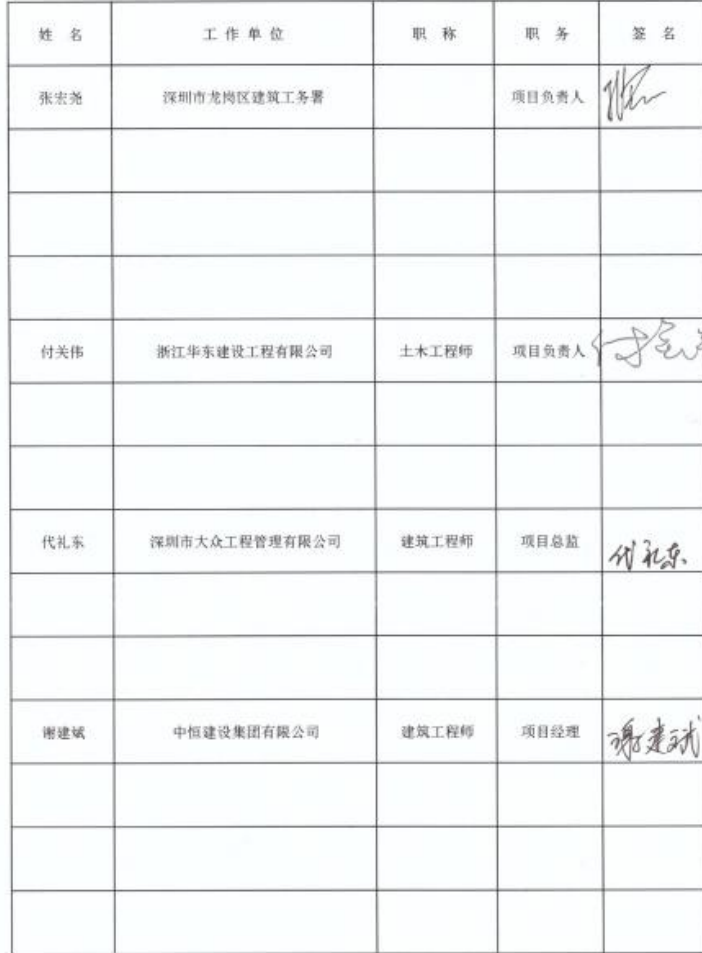 姓 名 工 作 单 位 职 称 职 务 签 名
张宏尧 深圳市龙岗区建筑工务署 项目负责人
付关伟 浙江华东建设工程有限公司 土木工程师 项目负责人
代礼东 深圳市大众工程管理有限公司 建筑工程师 项目总监 代礼东
谢建斌 中恒建设集团有限公司 建筑工程师 项目经理 谢建斌